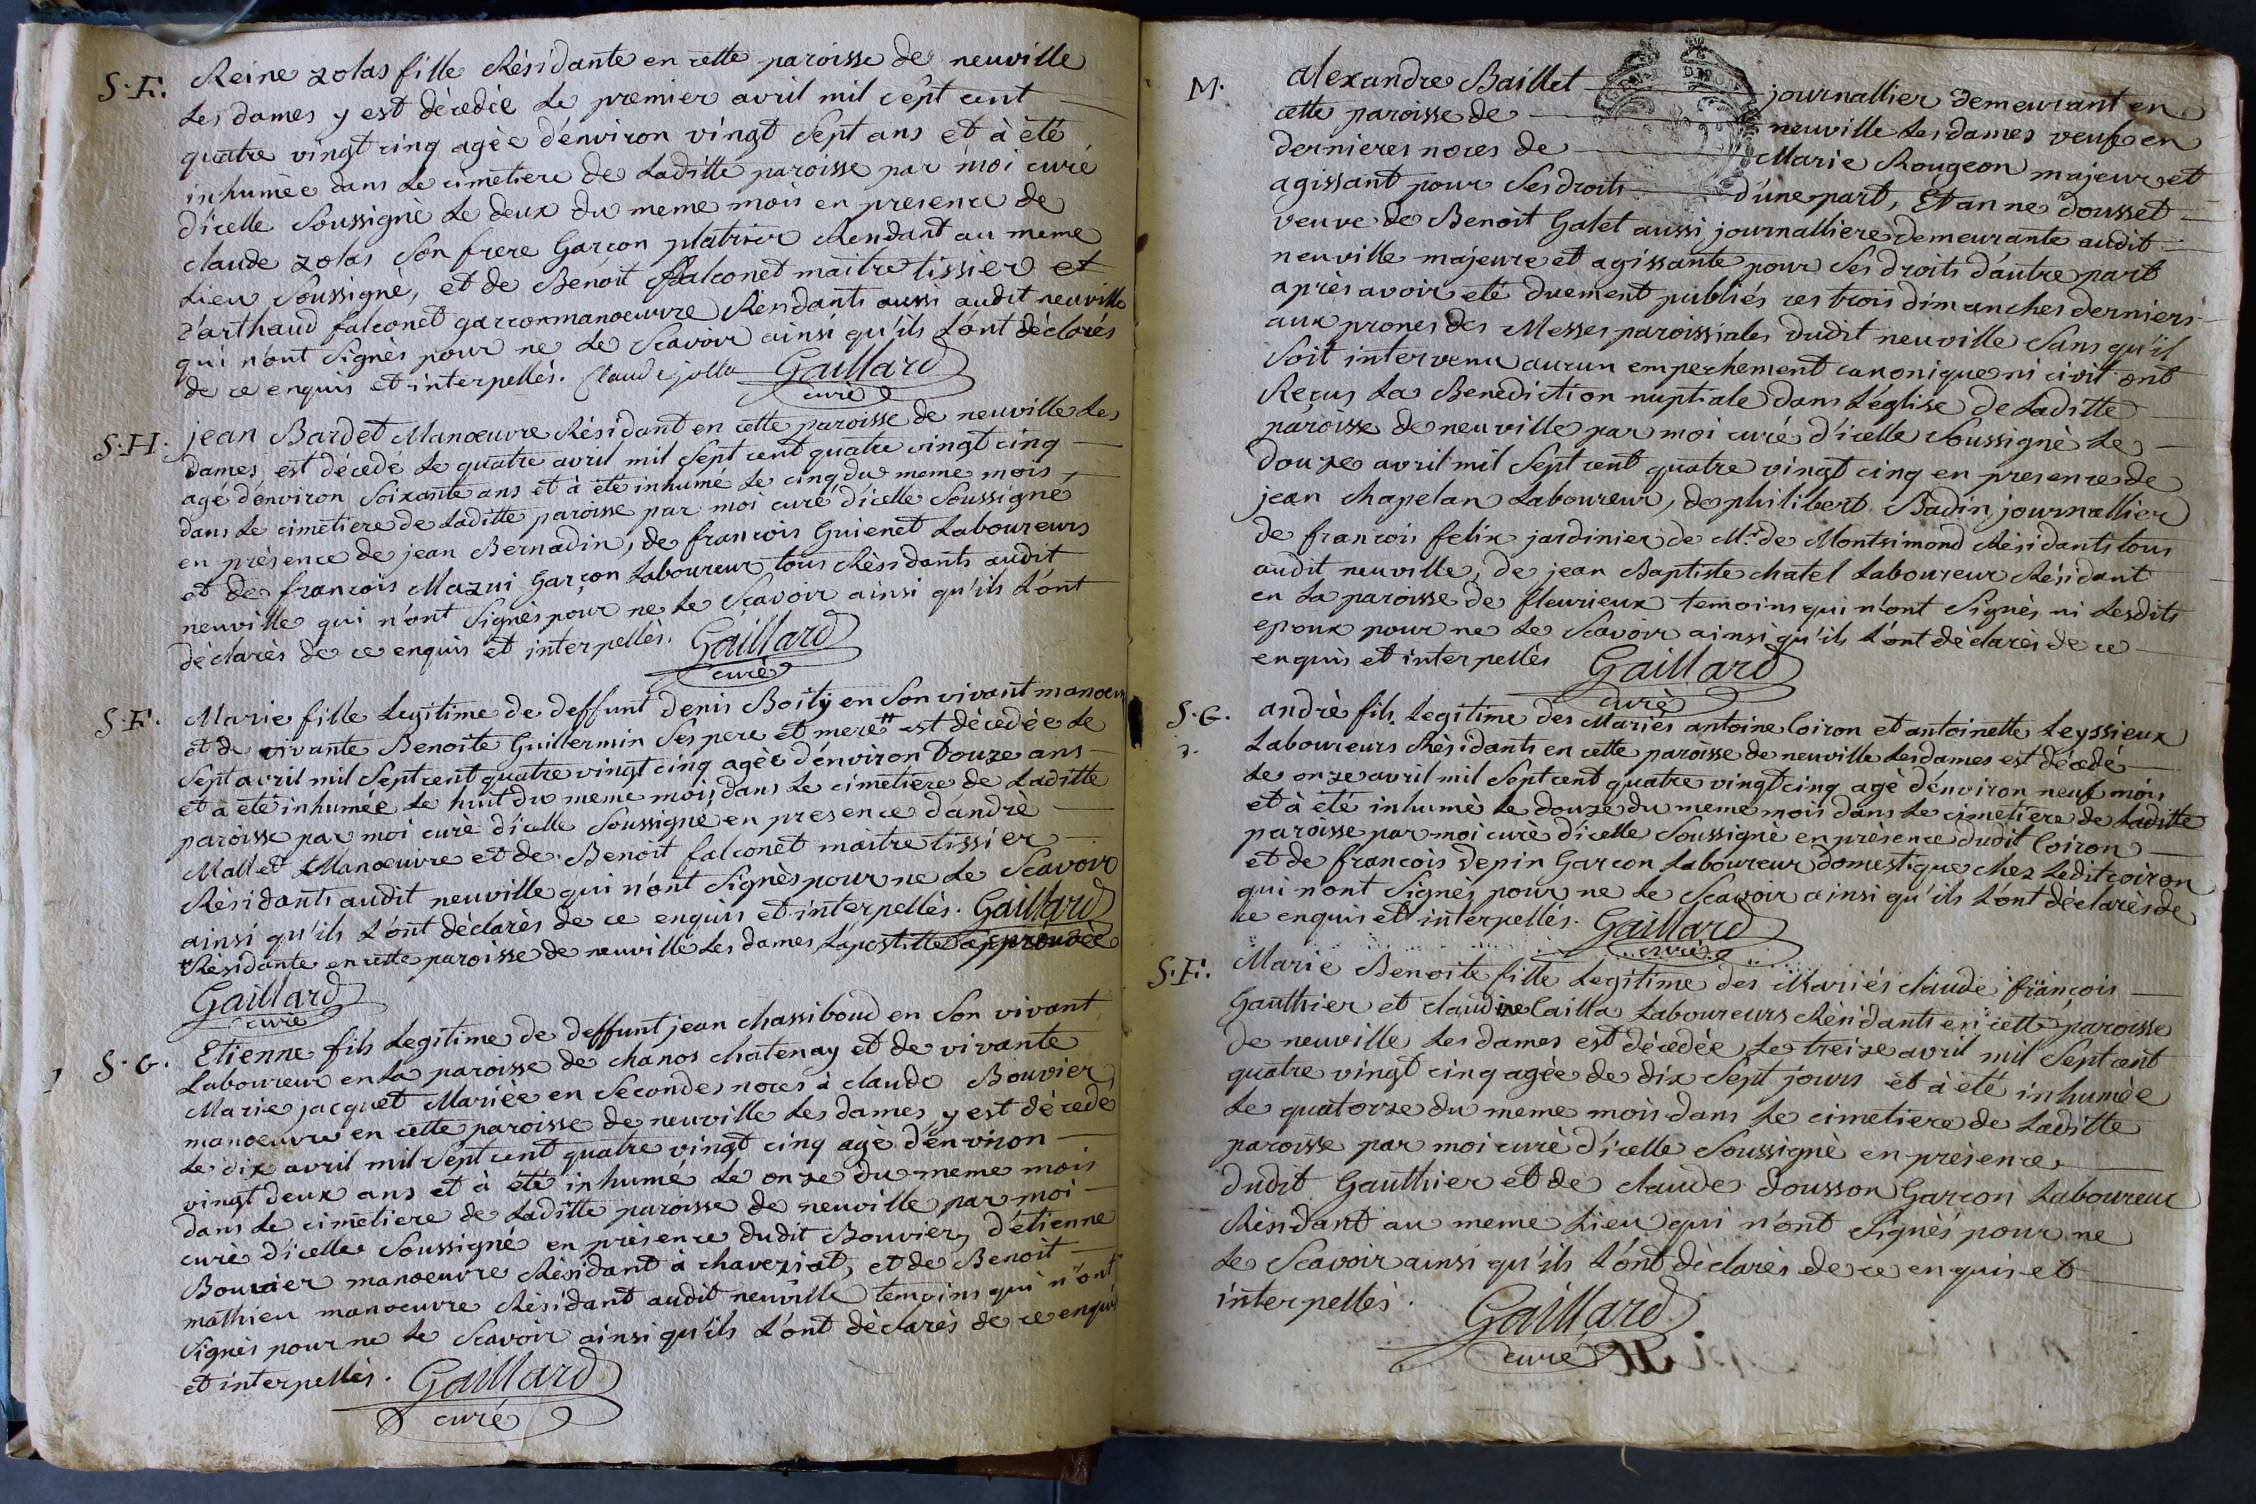 S.F. Reine zolas fille Résidante en cette paroisse de neuville
Les dames y est décedée Le premier avril mil Sept cent
quatre vingt cinq agée d'énviron vingt Sept ans et à été
inhumée dans Le cimetiere de Laditte paroisse par moi curé
d'icelle Soussigné Le deux du meme mois en presence de
claude zolas Son frere Garçon platrier Rendant au meme
Lieu Soussigné, et de Benoit falconet maitre tissier et
d'arthaud falconet garcon manoeuvre Résidants aussi audit neuville
qui n'ont Signés pour ne Le Scavoir ainsi qu'ils L'ont déclarés
de ce enquis et interpellés. Claude jolla Gaillard
curé
S.H. jean Bardet Manœuvre Résidant en cette paroisse de neuville Les
dames est décedé Le quatre avril mil Sept cent quatre vingt cinq
agé d'énviron Soixante ans et à été inhumé Le cinq du meme mois
dans Le cimetiere de Laditte paroisse par moi curé d'icelle Soussigné
en présence de jean Bernadin, de francois Guienet Laboureurs
et de francois Mazui Garçon Laboureur tous Résidants audit
neuville qui n'ont Signés pour ne Le Scavoir ainsi qu'ils L'ont
déclarés de ce enquis et interpellés. Gaillard
curé
S.F. Marie fille Legitime de deffunt denis Boity en Son vivant manoeuv
et de vivante Benoite Guillermin Ses pere et mere # est décedée Le
Sept avril mil Sept cent quatre vingt cinq agée d'énviron Douze ans
et à été inhumée Le huit du meme mois dans Le cimetiere de Laditte
paroisse par moi curé d'icelle Soussigné en presence d'andré
Mallet Manœuvre et de Benoit falconet maitre tissier
Résidants audit neuville qui n'ont Signés pour ne Le Scavoir
ainsi qu'ils L'ont déclarés de ce enquis et interpellés. Gaillard
# Résidante en cette paroisse de neuville Les dames L'apostille approuvée
Gaillard
curé
S.G. Etienne fils Legitime de deffunt jean chassiboud en Son vivant
Laboureur en La paroisse de chanos chatenay et de vivante
Marie jacquet Mariée en Secondes noces à claude Bouvier
manoeuvre en cette paroisse de neuville Les dames, y est décedé
Le dix avril mil Sept cent quatre vingt cinq agé d'énviron
vingt deux ans et à été inhumé Le onze du meme mois
dans Le cimetiere de Laditte paroisse de neuville par moi
curé d'icelle Soussigné en présence dudit Bouvier, d'étienne
Bouvier manoeuvre Résidant à chaveziat, et de Benoit
mathieu manoeuvre Résidant audit neuville temoins qui n'ont
Signés pour ne Le Scavoir ainsi qu'ils L'ont déclarés de ce enquis
et interpellés. Gaillard
curé
M. alexandre Baillet journallier demeurant en
cette paroisse de neuville Les dames veuf en
dernieres noces de Marie Rougeon majeur et
agissant pour Ses droits d'une part, Et anne dousset
veuve de Benoit Galet aussi journalliere demeurante audit
neuville majeure et agissante pour Ses droits d'autre part
après avoir eté duement publiés ces trois dimanches derniers
aux prones des Messes paroissiales dudit neuville Sans qu'il
Soit intervenu aucun empechement canonique ni civil ont
Reçus La Benediction nuptiale dans L'église de Laditte
paroisse de neuville par moi curé d'icelle Soussigné Le
douze avril mil Sept cent quatre vingt cinq en presence de
jean chapelan Laboureur, de philibert Badin journallier
de francois felix jardinier de Mr. de Montsimond Résidants tous
audit neuville, de jean Baptiste chatel Laboureur Résidant
en La paroisse de fleurieux temoins qui n'ont Signés ni Lesdits
epoux pour ne Le Scavoir ainsi qu'ils L'ont déclarés de ce
enquis et interpellés Gaillard
curé
S.G. andré fils Legitime des Mariés antoine Coiron et antoinette Leyssieux
Laboureurs Résidants en cette paroisse de neuville Les dames est décedé
Le onze avril mil Sept cent quatre vingt cinq agé d'énviron neuf mois
et à été inhumé Le douze du meme mois dans Le cimetiere de Laditte
paroisse par moi curé d'icelle Soussigné en présence dudit Coiron
et de francois depin Garcon Laboureur domestique chez Ledit coiron
qui n'ont Signés pour ne Le Scavoir ainsi qu'ils L'ont déclarés de
ce enquis et interpellés. Gaillard
curé
S.F. Marie Benoite fille Legitime des Mariés claude françois
Gauthier et claudine Cailla Laboureurs Résidants en cette paroisse
de neuville Les dames est décedée Le treize avril mil Sept cent
quatre vingt cinq agée de dix Sept jours et à été inhumée
Le quatorze du meme mois dans Le cimetiere de Laditte
paroisse par moi curé d'icelle Soussigné en présence
dudit Gauthier et de claude dousson Garcon Laboureur
Résidant au meme Lieu qui n'ont Signés pour ne
Le Scavoir ainsi qu'ils L'ont déclarés de ce enquis et
interpellés. Gaillard
curé